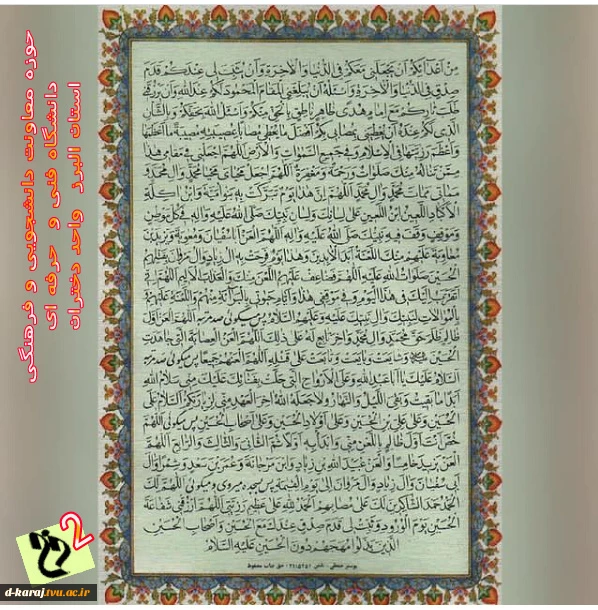 حوزه معاونت دانشجویی و فرهنگی
دانشگاه فنی و حرفه ای
استان البرز واحد دختران
مِنْ اَعْدَائِكُمْ اَنْ يَجْعَلَنِي مَعَكُمْ فِي الدُّنْيَا وَالْآخِرَةِ وَاَنْ يُثَبِّتَ لِي عِنْدَكُمْ قَدَمَ
صِدْقٍ فِي الدُّنْيَا وَالْآخِرَةِ وَاَسْئَلُهُ اَنْ يُبَلِّغَنِي الْمَقَامَ الْمَحْمُودَ لَكُمْ عِنْدَ اللهِ وَاَنْ يَرْزُقَنِي
طَلَبَ ثَارِكُمْ مَعَ اِمَامٍ هُدًى ظَاهِرٍ نَاطِقٍ بِالْحَقِّ مِنْكُمْ وَاَسْئَلُ اللهَ بِحَقِّكُمْ وَبِالشَّأْنِ
الَّذِي لَكُمْ عِنْدَهُ اَنْ يُعْطِيَنِي بِمُصَابِي بِكُمْ اَفْضَلَ مَا يُعْطِي مُصَابًا بِمُصِيبَتِهِ مُصِيبَةً مَا اَعْظَمَهَا
وَاَعْظَمَ رَزِيَّتَهَا فِي الْاِسْلَامِ وَفِي جَمِيعِ السَّمٰوَاتِ وَالْاَرْضِ اَللّٰهُمَّ اجْعَلْنِي فِي مَقَامِي هٰذَا
مِمَّنْ تَنَالُهُ مِنْكَ صَلَوَاتٌ وَرَحْمَةٌ وَمَغْفِرَةٌ اَللّٰهُمَّ اجْعَلْ مَحْيَايَ مَحْيَا مُحَمَّدٍ وَآلِ مُحَمَّدٍ وَ
مَمَاتِي مَمَاتَ مُحَمَّدٍ وَآلِ مُحَمَّدٍ اَللّٰهُمَّ اِنَّ هٰذَا يَوْمٌ تَبَرَّكَتْ بِهِ بَنُو اُمَيَّةَ وَابْنُ اٰكِلَةِ
الْاَكْبَادِ اللَّعِينُ ابْنُ اللَّعِينِ عَلَى لِسَانِكَ وَلِسَانِ نَبِيِّكَ صَلَّى اللهُ عَلَيْهِ وَآلِهِ فِي كُلِّ مَوْطِنٍ
وَمَوْقِفٍ وَقَفَ فِيهِ نَبِيُّكَ صَلَّى اللهُ عَلَيْهِ وَآلِهِ اَللّٰهُمَّ الْعَنْ اَبَا سُفْيَانَ وَمُعَاوِيَةَ وَيَزِيدَ بْنَ
مُعَاوِيَةَ عَلَيْهِمْ مِنْكَ اللَّعْنَةُ اَبَدَ الْآبِدِينَ وَهٰذَا يَوْمٌ فَرِحَتْ بِهِ آلُ زِيَادٍ وَآلُ مَرْوَانَ بِقَتْلِهِمُ
الْحُسَيْنَ صَلَوَاتُ اللهِ عَلَيْهِ اَللّٰهُمَّ فَضَاعِفْ عَلَيْهِمُ اللَّعْنَ مِنْكَ وَالْعَذَابَ الْاَلِيمَ اَللّٰهُمَّ اِنِّي
اَتَقَرَّبُ اِلَيْكَ فِي هٰذَا الْيَوْمِ وَفِي مَوْقِفِي هٰذَا وَاَيَّامِ حَيٰوتِي بِالْبَرَاءَةِ مِنْهُمْ وَاللَّعْنَةِ عَلَيْهِمْ
وَبِالْمُوَالَاتِ لِنَبِيِّكَ وَآلِ نَبِيِّكَ عَلَيْهِ وَعَلَيْهِمُ السَّلَامُ پس میگوئی صد مرتبه اَللّٰهُمَّ الْعَنْ اَوَّلَ
ظَالِمٍ ظَلَمَ حَقَّ مُحَمَّدٍ وَآلِ مُحَمَّدٍ وَآخِرَ تَابِعٍ لَهُ عَلَى ذٰلِكَ اَللّٰهُمَّ الْعَنِ الْعِصَابَةَ الَّتِي جَاهَدَتِ
الْحُسَيْنَ وَشَايَعَتْ وَبَايَعَتْ وَتَابَعَتْ عَلَى قَتْلِهِ اَللّٰهُمَّ الْعَنْهُمْ جَمِيعًا پس میگوئی صد مرتبه
اَلسَّلَامُ عَلَيْكَ يَا اَبَا عَبْدِ اللهِ وَعَلَى الْاَرْوَاحِ الَّتِي حَلَّتْ بِفِنَائِكَ عَلَيْكَ مِنِّي سَلَامُ اللهِ
اَبَدًا مَا بَقِيتُ وَبَقِيَ اللَّيْلُ وَالنَّهَارُ وَلَا جَعَلَهُ اللهُ آخِرَ الْعَهْدِ مِنِّي لِزِيَارَتِكُمْ اَلسَّلَامُ عَلَى
الْحُسَيْنِ وَعَلَى عَلِيِّ بْنِ الْحُسَيْنِ وَعَلَى اَوْلَادِ الْحُسَيْنِ وَعَلَى اَصْحَابِ الْحُسَيْنِ پس میگوئی اَللّٰهُمَّ
خُصَّ اَنْتَ اَوَّلَ ظَالِمٍ بِاللَّعْنِ مِنِّي وَابْدَأْ بِهِ اَوَّلًا ثُمَّ الثَّانِيَ وَالثَّالِثَ وَالرَّابِعَ اَللّٰهُمَّ
الْعَنْ يَزِيدَ خَامِسًا وَالْعَنْ عُبَيْدَ اللهِ بْنَ زِيَادٍ وَابْنَ مَرْجَانَةَ وَعُمَرَ بْنَ سَعْدٍ وَشِمْرًا وَآلَ
اَبِي سُفْيَانَ وَآلَ زِيَادٍ وَآلَ مَرْوَانَ اِلَى يَوْمِ الْقِيٰمَةِ پس بسجده میروی و میگوئی اَللّٰهُمَّ لَكَ
الْحَمْدُ حَمْدَ الشَّاكِرِينَ لَكَ عَلَى مُصَابِهِمْ اَلْحَمْدُ لِلّٰهِ عَلَى عَظِيمِ رَزِيَّتِي اَللّٰهُمَّ ارْزُقْنِي شَفَاعَةَ
الْحُسَيْنِ يَوْمَ الْوُرُودِ وَثَبِّتْ لِي قَدَمَ صِدْقٍ عِنْدَكَ مَعَ الْحُسَيْنِ وَاَصْحَابِ الْحُسَيْنِ
الَّذِينَ بَذَلُوا مُهَجَهُمْ دُونَ الْحُسَيْنِ عَلَيْهِ السَّلَامُ
2
d-karaj.tvu.ac.ir